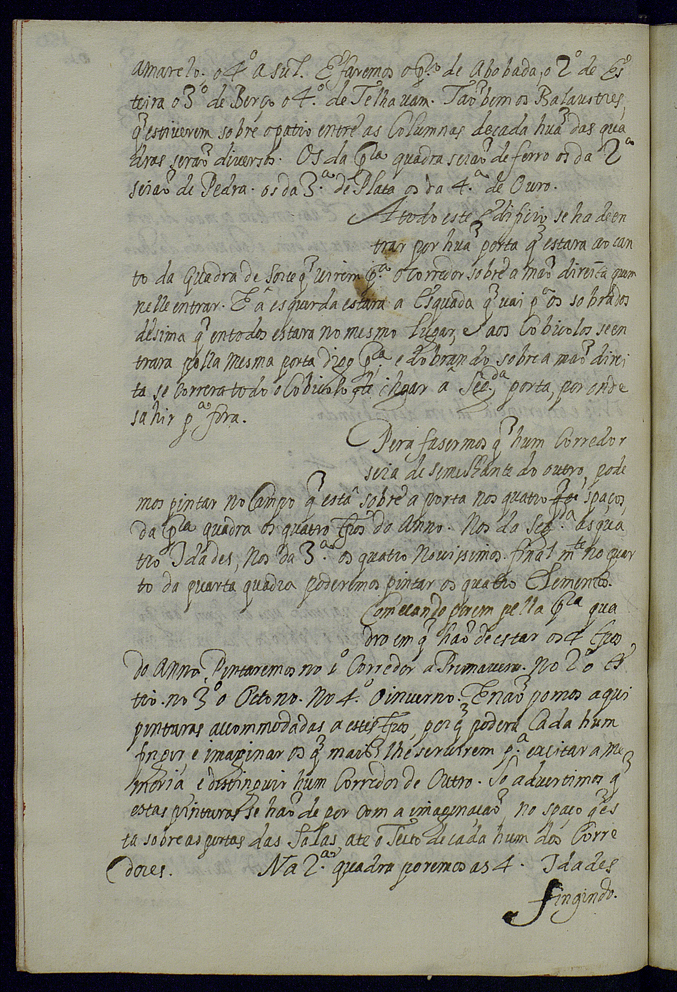 amarelo. o 4º asul. E faremos o pro de Abobada, o 2º de Es
teira o 3º de Berço o 4º de Telha vam. Tão bem os Balaustres,
q̃ estiverem sobre o patio entre as Columnas de cada hũa das qua
dras serão diversos. Os da pra quadra serão de ferro os da 2ª
serão de Pedra. os da 3ª de Plata os da 4ª de Ouro.
A todo este edificio se ha de en
trar por hũa porta q̃ estara ao can
to da quadra de sorte q̃ virem pª o Corredor sobre a mão direita quem
nelle entrar. E a esquerda estara a Esquada q̃ vai pª os sobrados
desima q̃ em todos estara no mesmo lugar, E aos Cobicolos se en
trara polla mesma porta e dobrando sobre a mão direi
ta se Correra todo o Cobicolo ate chegar a Segda porta, por onde
sahir pª fora.
Pera fasermos q̃ hum Corredor
seia desimilhante do outro, pode
mos pintar no Campo q̃ está sobre a porta nos quatro spaços,
da pra quadra os quatro tpos do Anno. Nos da Segda as qua
tro Idades, Nos da 3ª os quatro Novissimos. finalmte no quar
to da quarta quadra poderemos pintar os quatro Elementos.
Comecando porem pella pra qua
dra em q̃ hão de estar os 4 tpos
do Anno, Pintaremos no 1º Corredor a Primavera. no 2º o Es
tio. no 3º o Octono. No 4º O inverno. E não pomos aqui
pinturas accommodadas a estes tpos, porq̃ podera Cada hum
fingir, e imaginar os q̃ mais lhe servirem pª excitar a me
moria e distinguir hum Corredor de Outro. Só advertimos q̃
estas pinturas se hão de por com a imaginação, no spaço q̃ es
ta sobre as portas das Salas, ate o Teito de cada hum dos Corre
dores. Na 2ª quadra poremos as 4. Idades
fingindo.